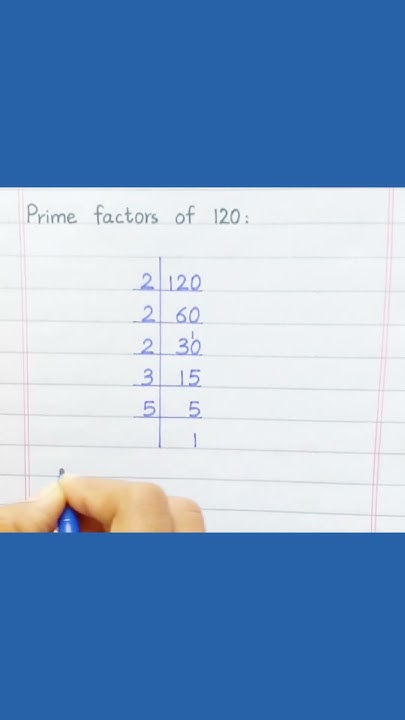 Prime factors of 120:
2 120
2 60
2 30
1
3 15
5 5
1